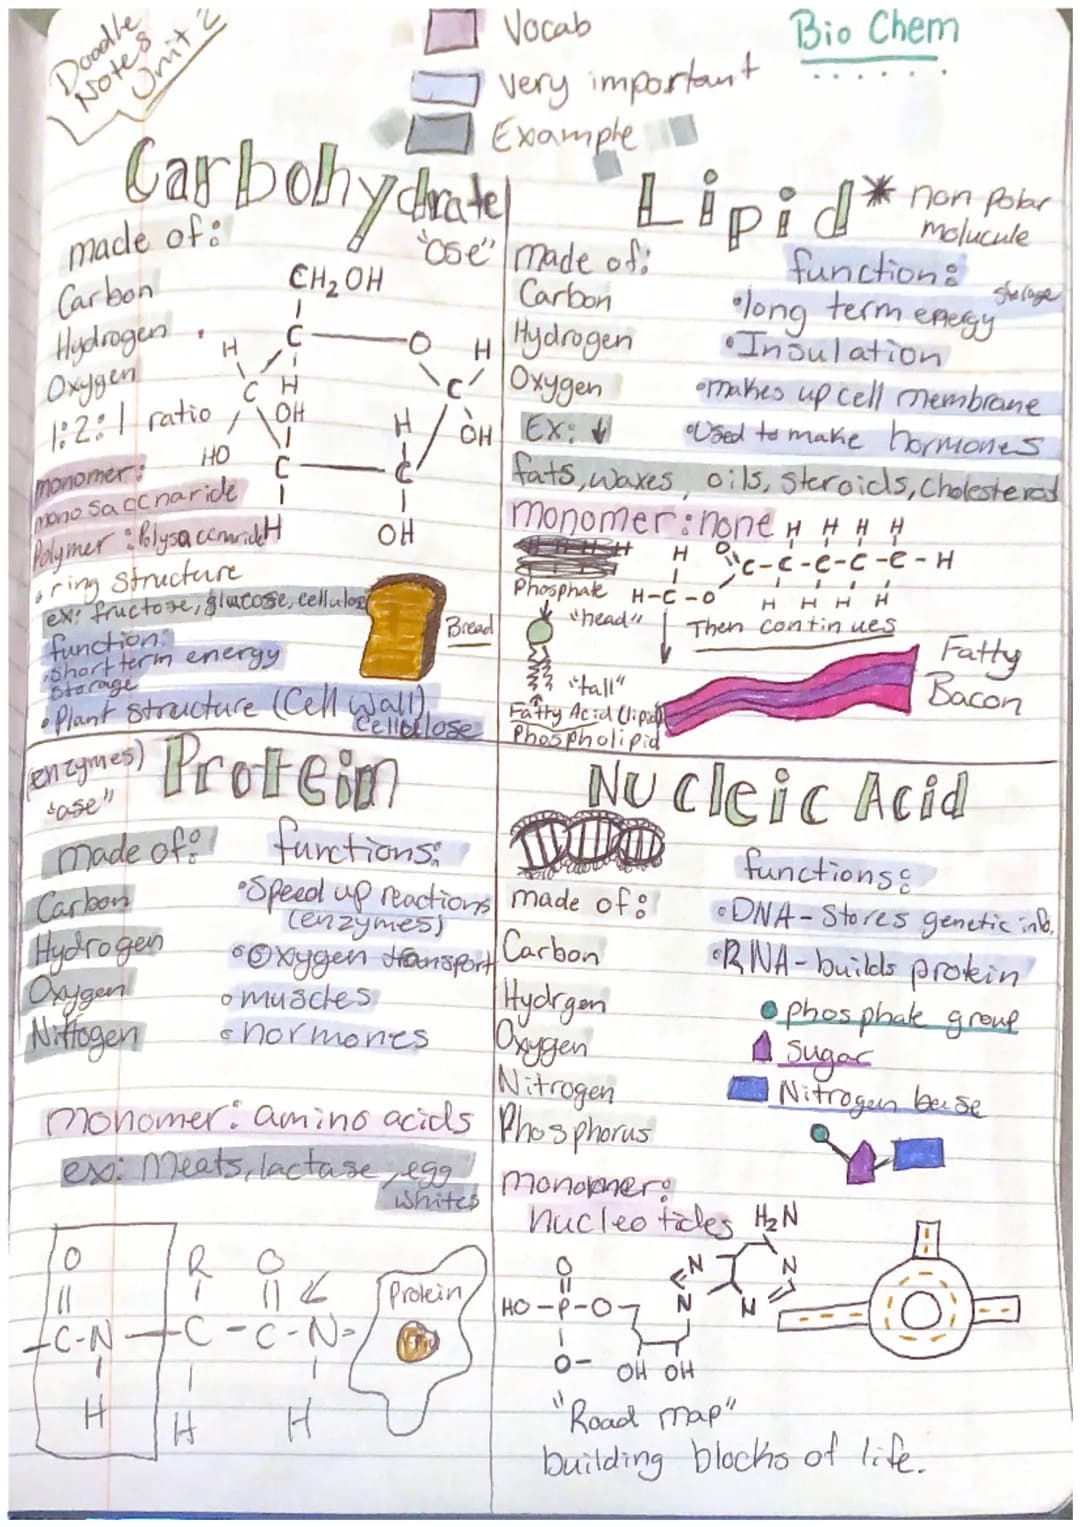 Doodle
Notes
Unit 2
Vocab
very important
Example
Bio Chem
Carbohydrate
"Ose"
made of:
Carbon
Hydrogen
Oxygen
1:2:1 ratio
monomer:
monosaccharide
Polymer: Polysaccharide
CH2OH
C
O
H
H
C
C
H
OH
H
OH
HO
C
C
H
OH
• ring structure
ex: fructose, glucose, cellulose
function:
• short term energy
storage
• Plant structure (Cell Wall)
Cellulose
Bread
Lipid* non polar
molucule
made of:
Carbon
Hydrogen
Oxygen
function:
• long term energy storage
• Insulation
• makes up cell membrane
• Used to make hormones
Ex: ↓
fats, waxes, oils, steroids, cholesterol
monomer: none
H H H H
H O C-C-C-C-C-H
H-C-O H H H H
Then continues
Phosphate
"head"
"tail"
Fatty Acid (lipid)
Phospholipid
Fatty
Bacon
(enzymes)
"ase"
Protein
made of:
Carbon
Hydrogen
Oxygen
Nittogen
functions:
• Speed up reactions
(enzymes)
• Oxygen transport
• muscles
• hormones
monomer: amino acids
ex: Meats, lactase, egg
whites
O R O
-C-N-C-C-N-
H H H
Protein
Nucleic Acid
made of:
Carbon
Hydrgen
Oxygen
Nitrogen
Phosphorus
functions:
• DNA - Stores genetic info.
• RNA - builds protein
phosphate group
Sugar
Nitrogen base
monomer:
nucleotides
H2N
O N N
HO-P-O N N
O- OH OH
"Road map"
building blocks of life.